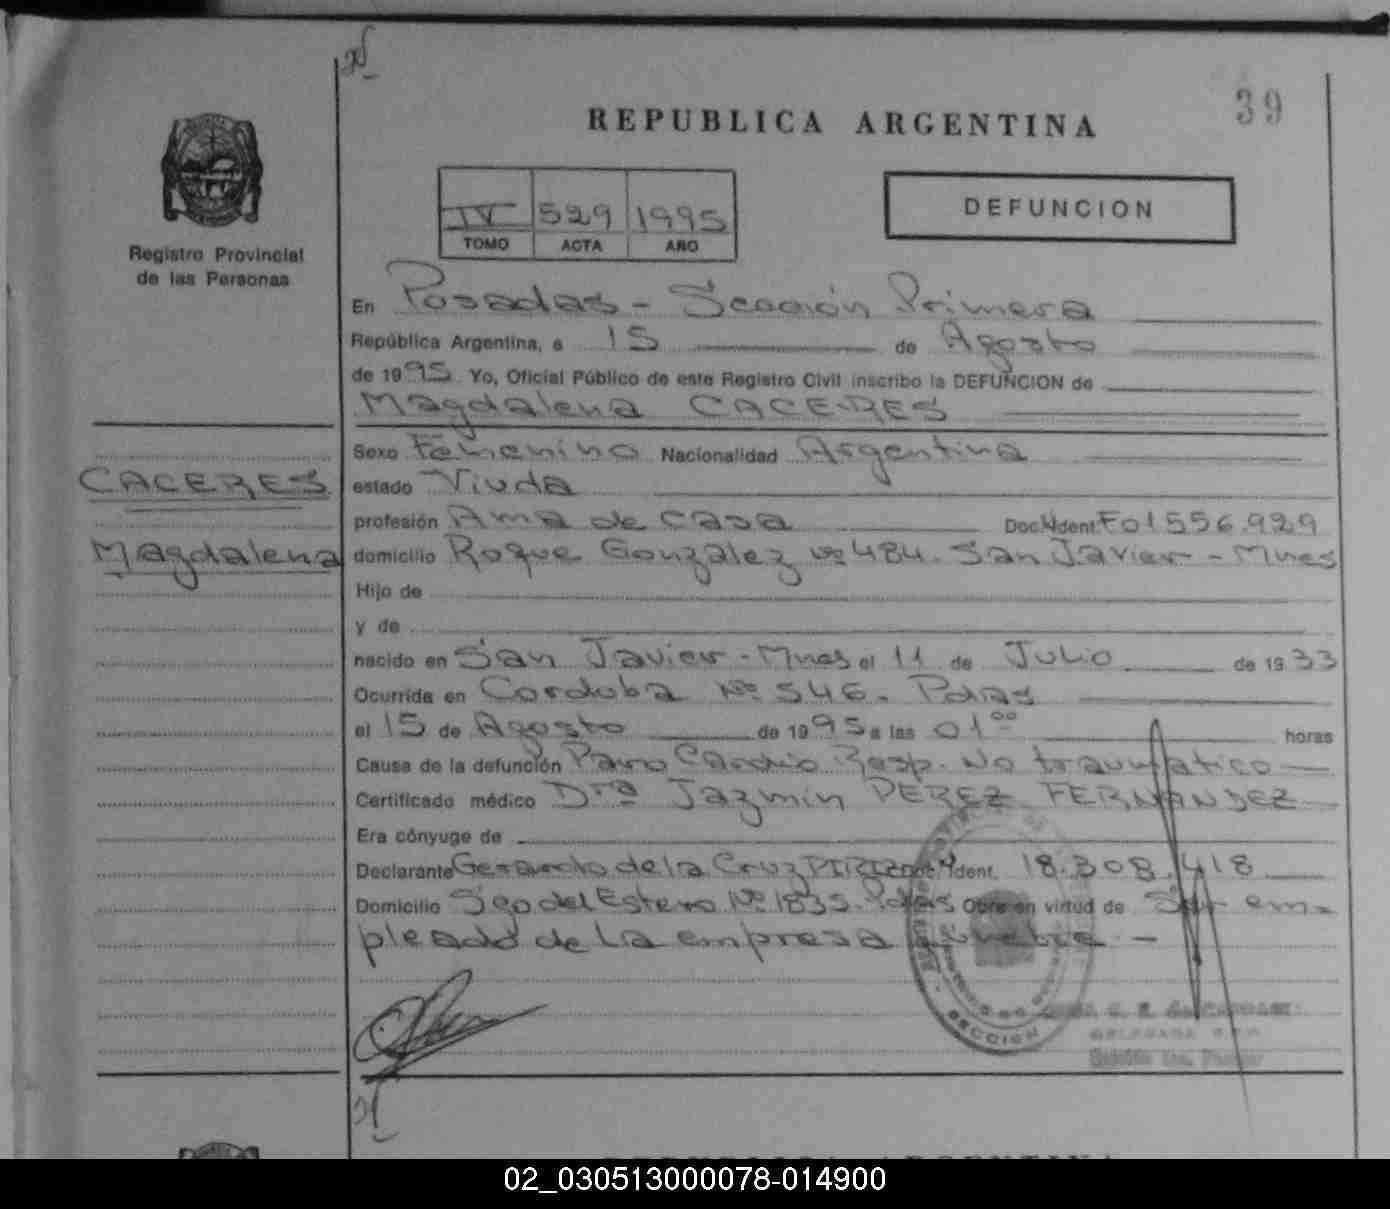 39
REPUBLICA ARGENTINA
IV 529 1995
TOMO ACTA AÑO
DEFUNCION
Registro Provincial
de las Personas
En Posadas - Sección Primera
República Argentina, a 15 de Agosto
de 1995 Yo, Oficial Público de este Registro Civil inscribo la DEFUNCION de
Magdalena CACERES
Sexo Femenino Nacionalidad Argentina
CACERES
estado Viuda
profesión Ama de casa Doc. Ident. F01556.929
Magdalena
domicilio Roque Gonzalez Nº 484. San Javier - Mnes
Hijo de
y de
nacido en San Javier - Mnes el 11 de Julio de 1933
Ocurrida en Cordoba Nº 546. Pdas
el 15 de Agosto de 1995 a las 01⁰⁰ horas
Causa de la defunción Paro Cardio Resp. No traumatico
Certificado médico Drª Jazmin PEREZ FERNANDEZ
Era cónyuge de
Declarante Gerardo de la Cruz PIRIZ Doc. Ident. 18.308.418
Domicilio Sgo del Estero Nº 1835. Pdas Obra en virtud de Ser em-
pleado de la empresa funebre -
SECCION
02_030513000078-014900